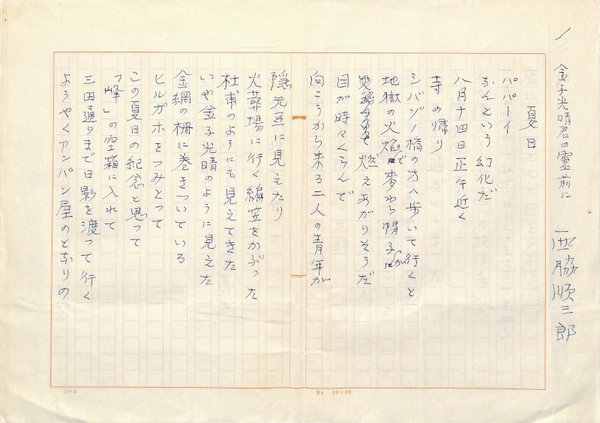 金子光晴君の霊前に
西脇順三郎
夏日
パパーイ
なんという幻化だ
八月十四日正午近く
寺の帰り
シバゾノ橋の方へ歩いて行くと
地獄の火焔で麦わら帽子が
燃えあがりそうだ
目が時々くらんで
向こうから来る二人の青年が
隠元豆に見えたり
火葬場に行く編笠をかぶった
杜甫のようにも見えてきた
いや金子光晴のように見えた
金網の柵に巻きついている
ヒルガホをつみとって
この夏日の紀念と思って
「峰」の空箱に入れて
三田通りまで日影を渡って行く
ようやくアンパン屋のとなりの